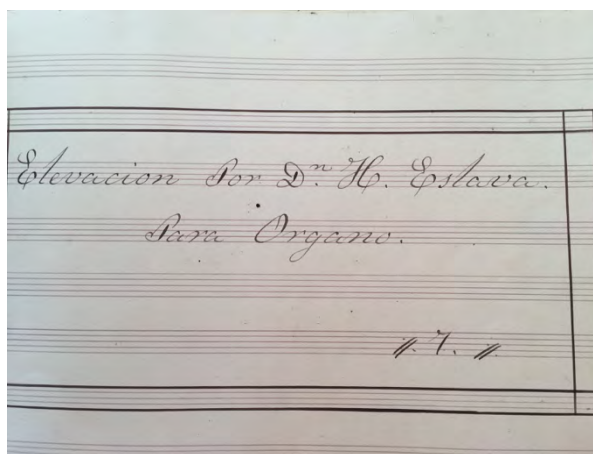 Elevacion Por Dⁿ. H. Eslava.
Para Organo.
〃. 7. 〃